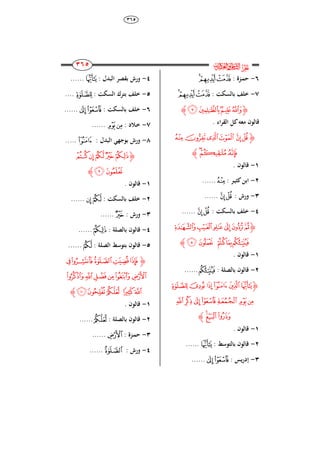 ٣٦٥
٣٦٥
٦- حمزة : قَدَّمَتْ أَيْدِيهِمْ
٧- خلف بالسكت : قَدَّمَتْ أَيْدِيهِمْ
﴿ وَاللَّهُ عَلِيمٌ بِالظَّالِمِينَ ٧ ﴾
قالون معه كل القراء .
﴿ قُلْ إِنَّ الْمَوْتَ الَّذِي تَفِرُّونَ مِنْهُ
فَإِنَّهُ مُلَاقِيكُمْ ﴾
١- قالون .
٢- ابن كثير : مِنْهُ ......
٣- ورش : قُلْ إِنَّ ......
٤- خلف بالسكت : قُلْ إِنَّ ......
﴿ ثُمَّ تُرَدُّونَ إِلَى عَالِمِ الْغَيْبِ وَالشَّهَادَةِ
فَيُنَبِّئُكُم بِمَا كُنتُمْ تَعْمَلُونَ ٨ ﴾
١- قالون .
٢- قالون بالصلة : فَيُنَبِّئُكُمْ ......
﴿ يَا أَيُّهَا الَّذِينَ آمَنُوا إِذَا نُودِيَ لِلصَّلَاةِ
مِن يَوْمِ الْجُمُعَةِ فَاسْعَوْا إِلَى ذِكْرِ اللَّهِ
وَذَرُوا الْبَيْعَ ﴾
١- قالون .
٢- قالون بالتوسط : يَا أَيُّهَا ......
٣- إدريس : فَاسْعَوْا إِلَى ......
٤- ورش بقصر البدل : يَا أَيُّهَا ......
٥- خلف بترك السكت : لِلصَّلَاةِ ....
٦- خلف بالسكت : فَاسْعَوْا إِلَى ......
٧- خلاد : مِن يَوْمِ ......
٨- ورش بوجهي البدل : آمَنُوا ......
﴿ ذَٰلِكُمْ خَيْرٌ لَّكُمْ إِن كُنتُمْ
تَعْلَمُونَ ٩ ﴾
١- قالون .
٢- خلف بالسكت : لَّكُمْ إِن ......
٣- ورش : خَيْرٌ ......
٤- قالون بالصلة : ذَٰلِكُمْ ......
٥- قالون بتوسط الصلة : لَّكُمْ ......
﴿ فَإِذَا قُضِيَتِ الصَّلَاةُ فَانتَشِرُوا فِي
الْأَرْضِ وَابْتَغُوا مِن فَضْلِ اللَّهِ وَاذْكُرُوا
اللَّهَ كَثِيرًا لَّعَلَّكُمْ تُفْلِحُونَ ١٠ ﴾
١- قالون .
٢- قالون بالصلة : لَّعَلَّكُمْ ......
٣- حمزة : الْأَرْضِ ......
٤- ورش : الصَّلَاةُ ......